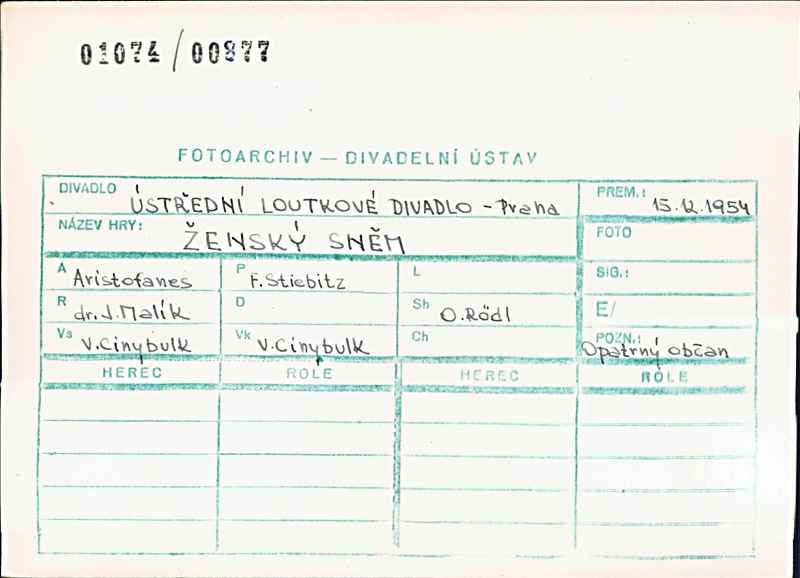 01074/00877
FOTOARCHIV — DIVADELNÍ ÚSTAV
DIVADLO ÚSTŘEDNÍ LOUTKOVÉ DIVADLO - Praha
PREM.: 15.12.1954
NÁZEV HRY: ŽENSKÝ SNĚM
FOTO
A Aristofanes
P F. Stiebitz
L
SIG.:
R dr. J. Malík
D
Sh O. Rödl
E/
Vs V. Cinybulk
Vk V. Cinybulk
Ch
POZN.: Opatrný občan
HEREC
ROLE
HEREC
ROLE